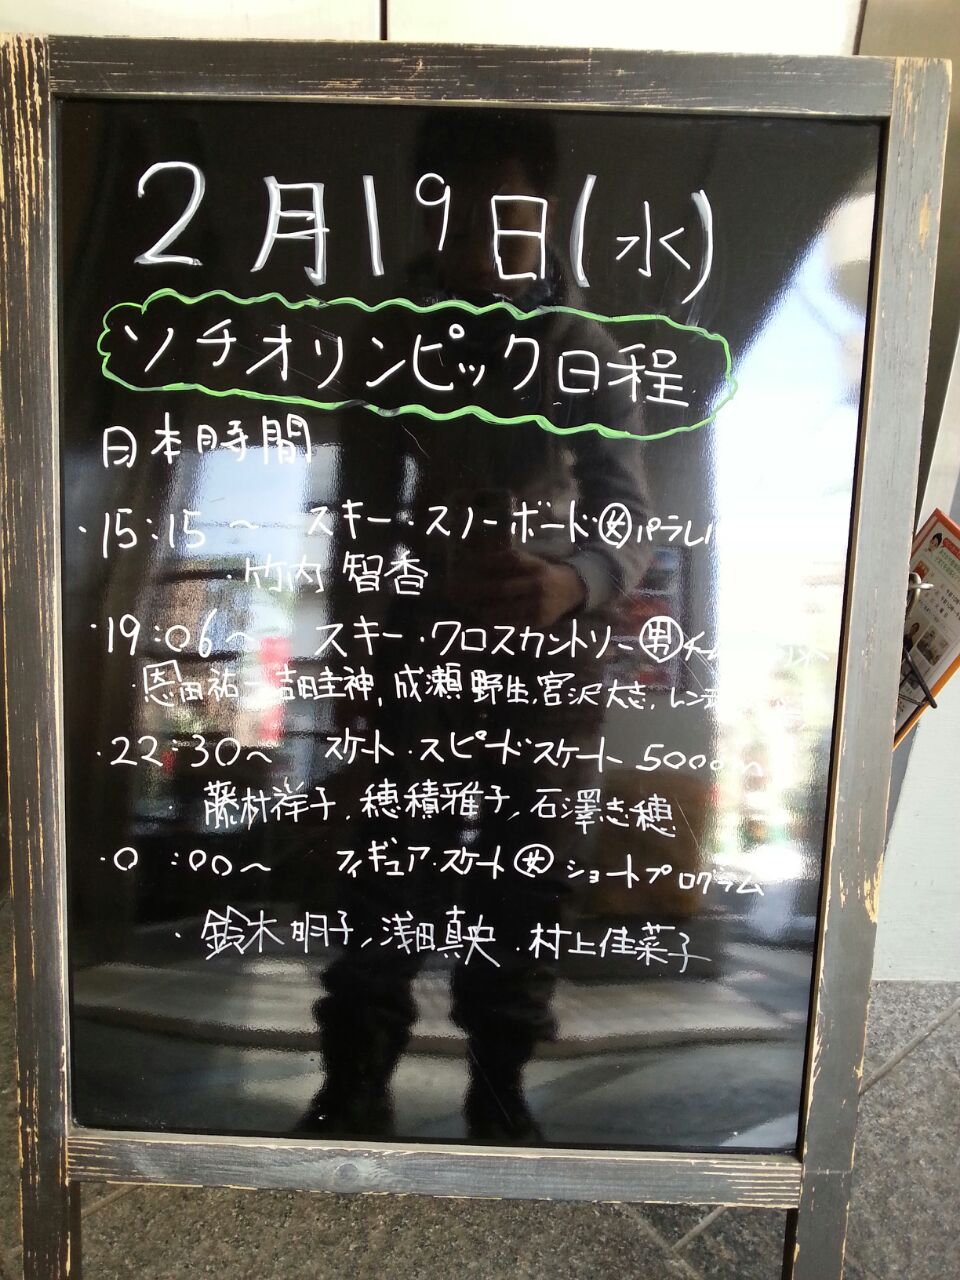 2月19日(水)
ソチオリンピック日程
日本時間
・15:15～ スキー・スノーボード㊛パラレル
・竹内 智香
・19:06～ スキー・クロスカントリー㊚チーム
・恩田祐一, 吉田圭伸, 成瀬野生, 宮沢大志, レンティ
・22:30～ スケート・スピードスケート 5000m
・藤村祥子, 穂積雅子, 石澤志穂
・0:00～ フィギュア・スケート㊛ショートプログラム
・鈴木明子, 浅田真央・村上佳菜子